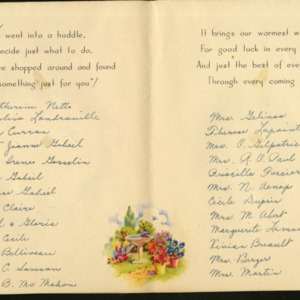 went into a huddle,
ecide just what to do,
e shopped around and found
something just for you"!
therine Netto
Curran
Jeanne Gabeil
Irenee Gosselin
Gabeil
Gabeil
Claire
& Gloria
Cecile
Belliveau
C. Samson
B. Mc Mahon
It brings our warmest w
For good luck in every
And just the best of eve
Through every coming
Mrs. Gelinas
Therese Lapoint
Mrs. P. Gilpatric
Mrs. R. P. Paul
Priscilla
Mrs. N.
Cecile Dupuis
Mrs. M. Abst
Marguerite
Vivian Breault
Mrs. Berger
Mrs. Martin